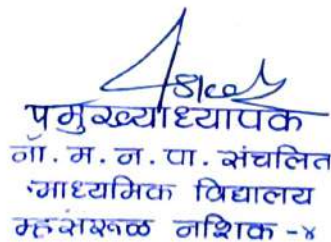 पमुख्याध्यापक
नॉ. म. न. पा. संचलित
माध्यमिक विद्यालय
म्हसरूळ नशिक -४